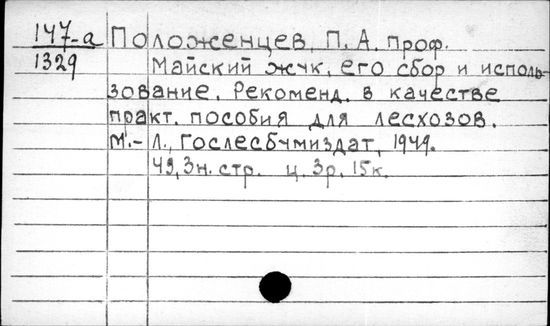 147-а Положенцев, П. А. проф.
1329 Майский жук, его сбор и исполь-
зование. Рекоменд. в качестве
практ. пособия для лесхозов.
М.-Л., Гослесбумиздат, 1949.
49, 3н. стр. ц. 3р. 15к.